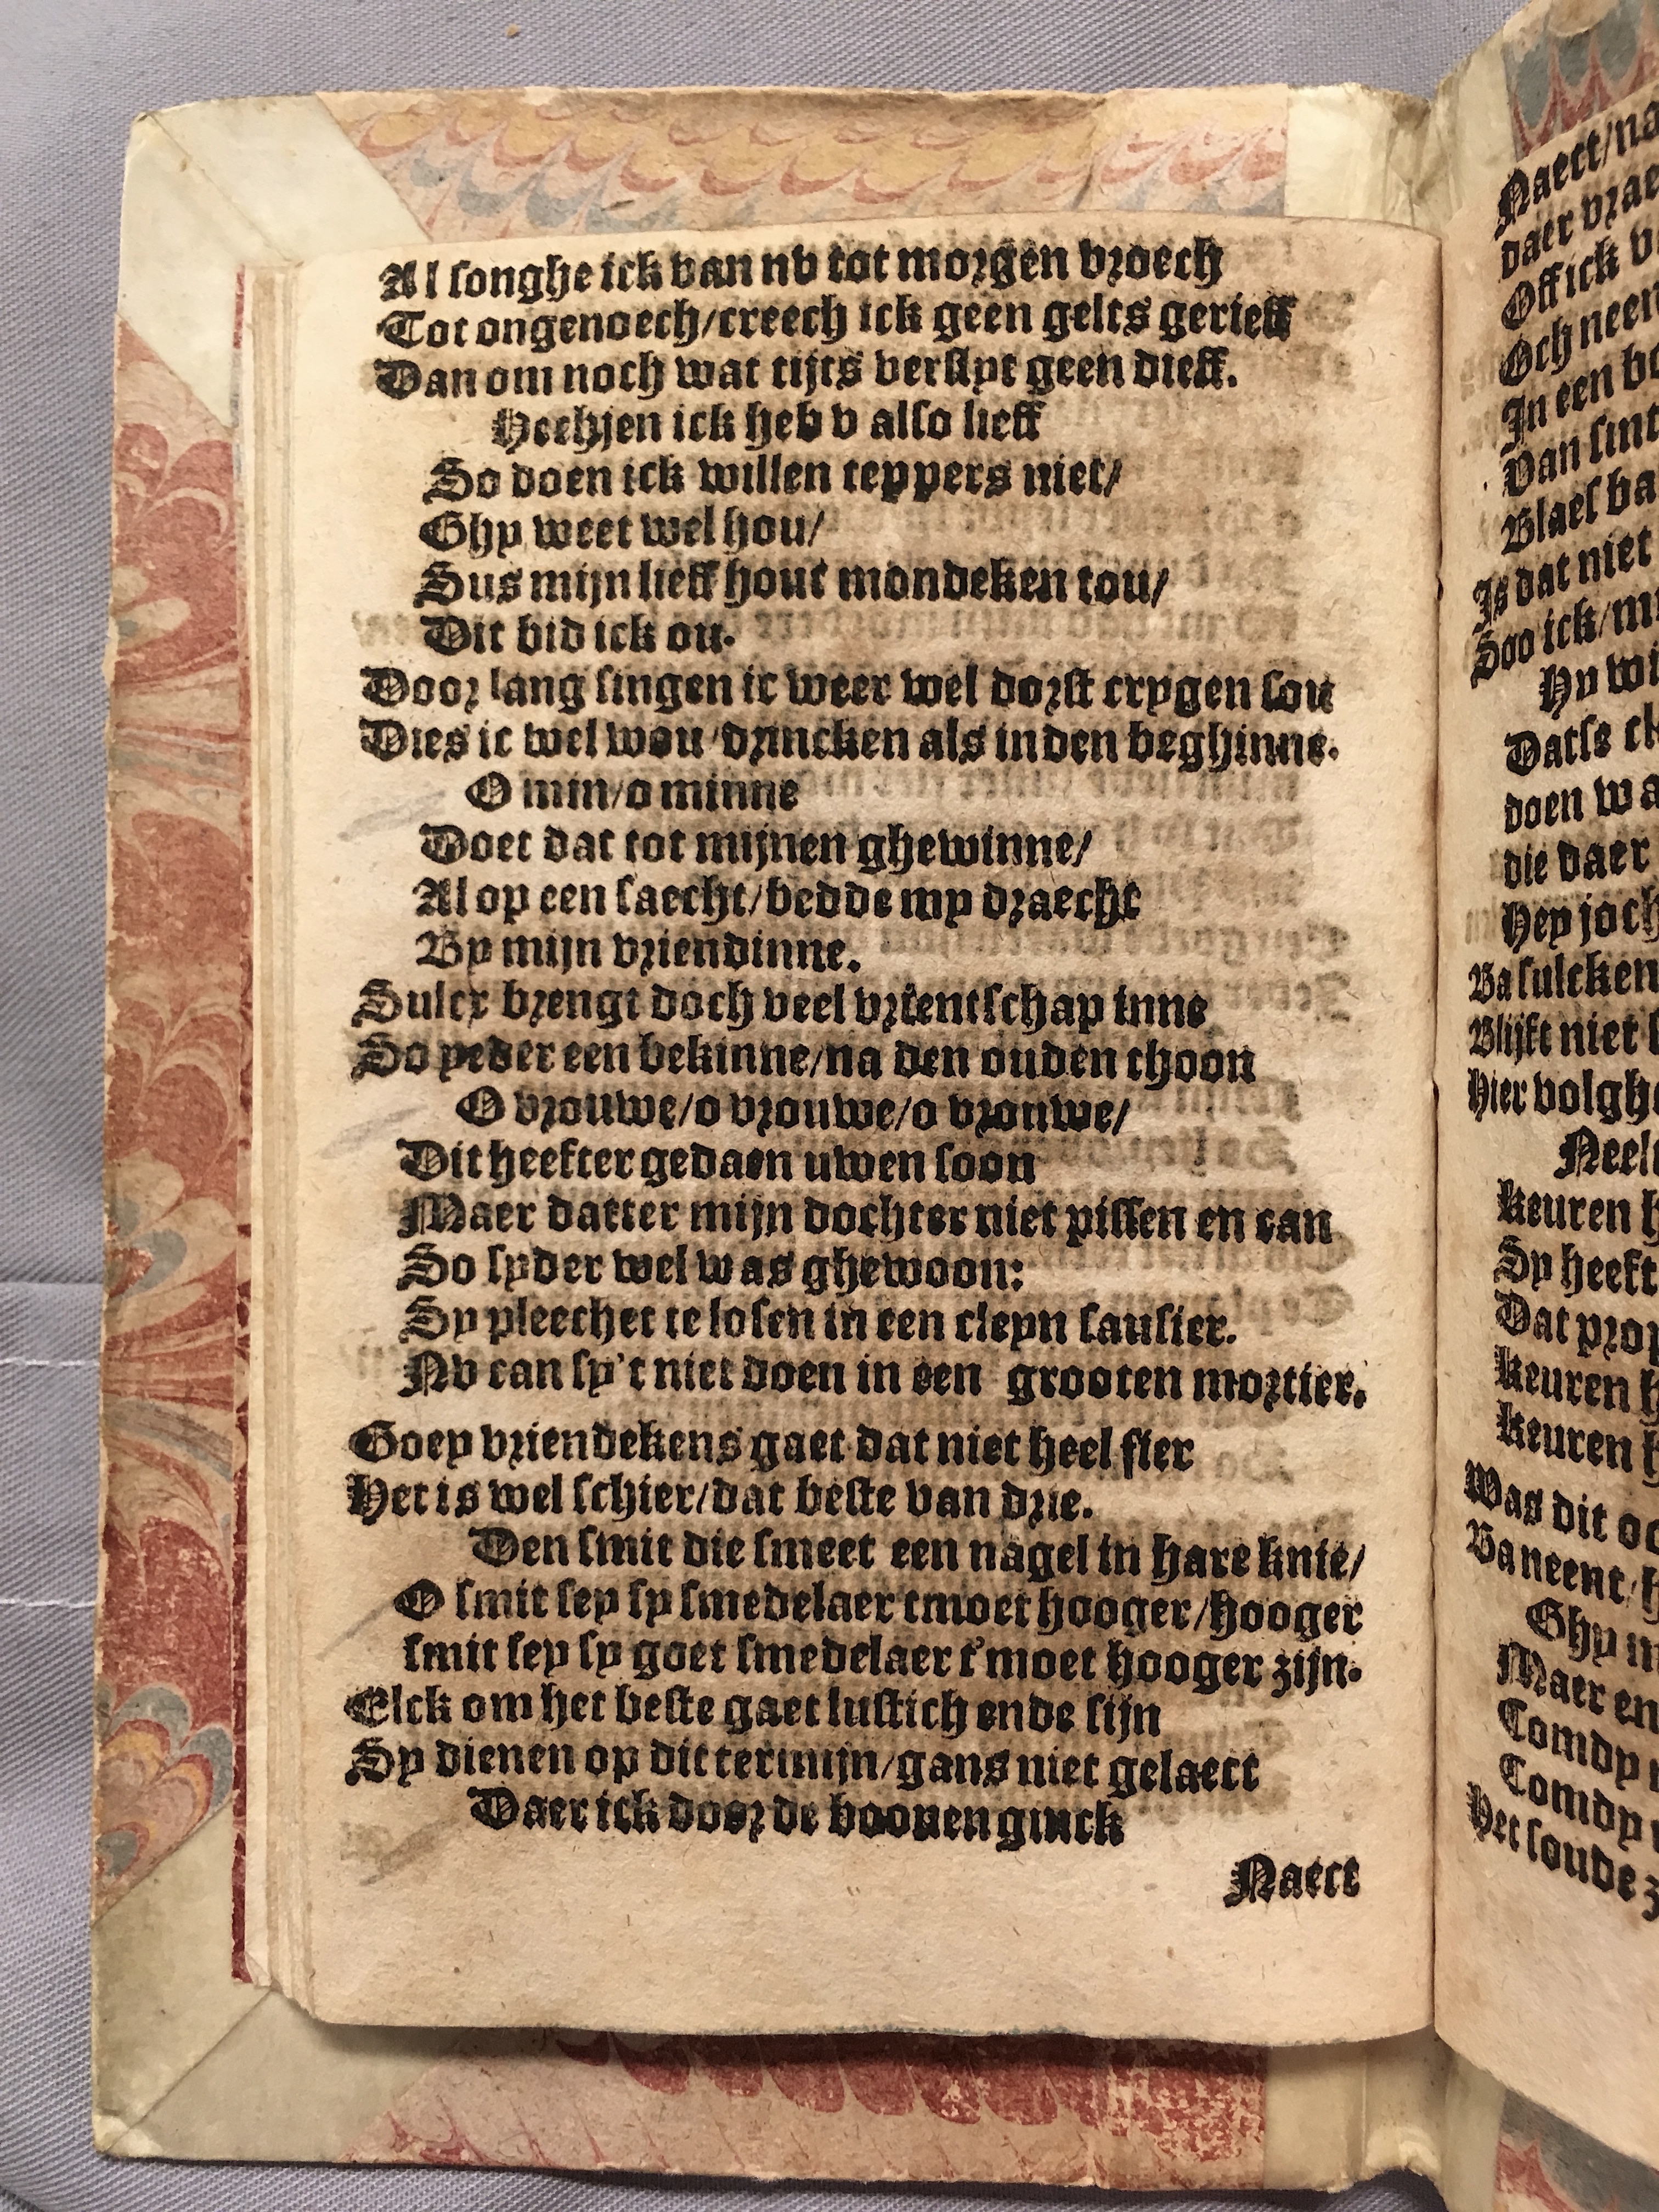 Al songhe ick van nv tot morgen vroech
Tot ongenoech/creech ick geen gelts gerieff
Dan om noch wat tijts verslyt geen dieff.
ick heb v also lieff
So doen ick willen teppers niet/
Ghy weet wel hou/
Sus mijn lieff hout mondeken tou/
Dit bid ick ou.
Door lang singen ic weer wel dorst crygen sou
Dies ic wel wou drincken als in den beghinne.
O min/o minne
Doet dat tot mijnen ghewinne/
Al op een saecht/bedde my draecht
By mijn vriendinne.
Sulcx brengt doch veel vrientschap inne
So yeder een bekinne/na den ouden thoon
O vrouwe/o vrouwe/o vrouwe/
Dit heefter gedaen uwen soon
Maer datter mijn dochter niet pissen en can
So syder wel was ghewoon:
Sy pleechet te losen in een cleyn sausier.
Nv can sy't niet doen in een grooten mortier.
Goey vriendekens gaet dat niet heel fier
Het is wel schier/dat beste van drie.
Den smit die smeet een nagel in hare knie/
O smit sey sy smedelaer tmoet hooger/hooger
smit sey sy goet smedelaer t'moet hooger zijn.
Elck om het beste gaet lustich ende fijn
Sy dienen op dit termijn/gans niet gelaect
Daer ick door de boonen ginck
Naect
Naect/na
daer
Off ick
Och neen
In een
Van sint
Blaes
Is dat niet
Soo ick/
Hy
Datse
doen
die daer
Hey
Ba sulcken
Blijft niet
Hier
Keuren
Sy heeft
Dat
Keuren
Keuren
Was dit
Ba neent
Ghy
Maer en
Comdy
Comdy
Het soude